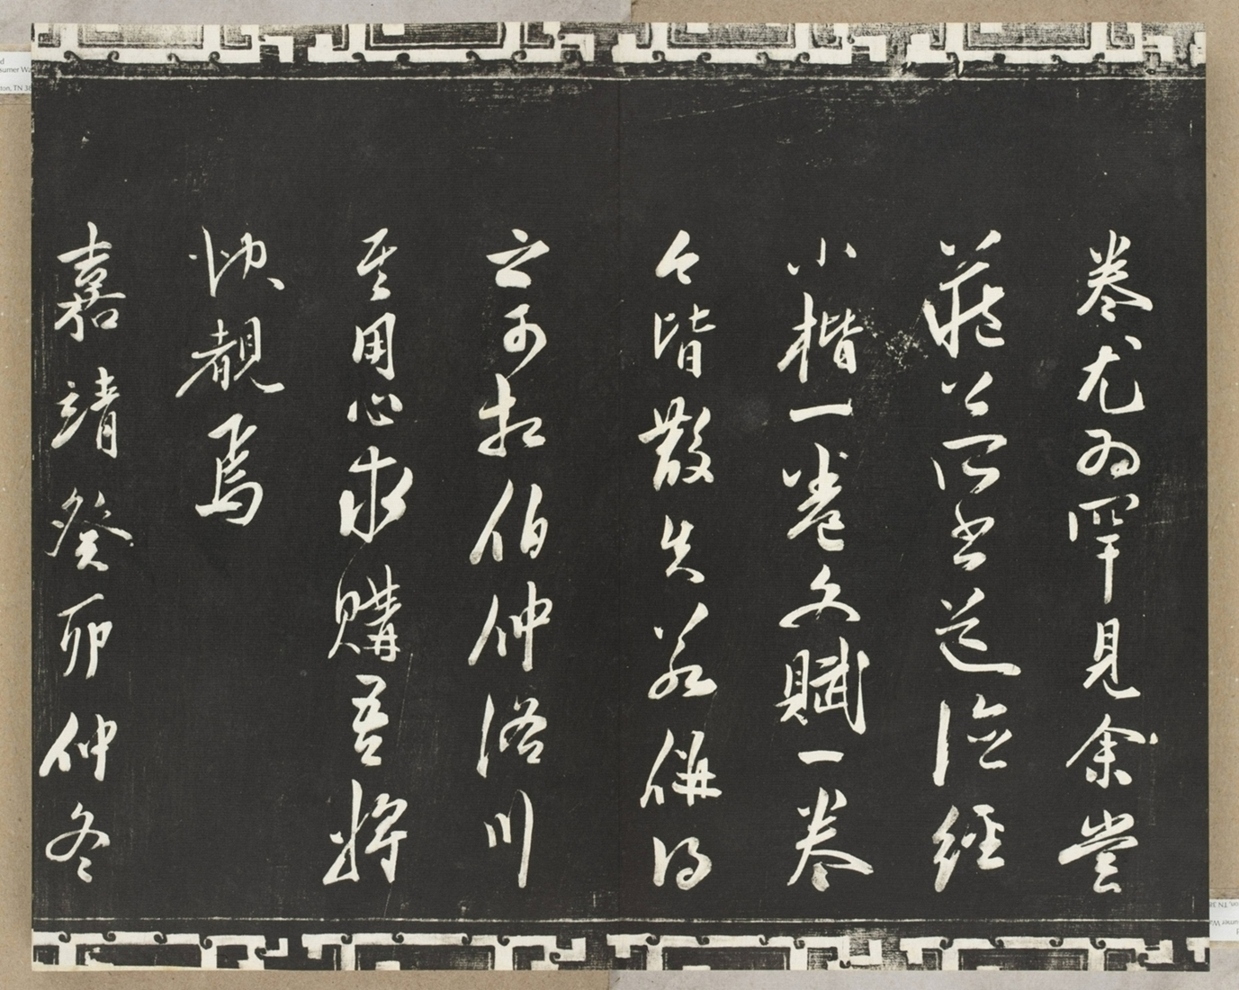 卷尤為罕見余嘗
藏公所書道德經
小楷一卷文賦一卷
今皆散失若併得
之可相伯仲浴川
其用心求購吾將
快覩焉
嘉靖癸卯仲冬